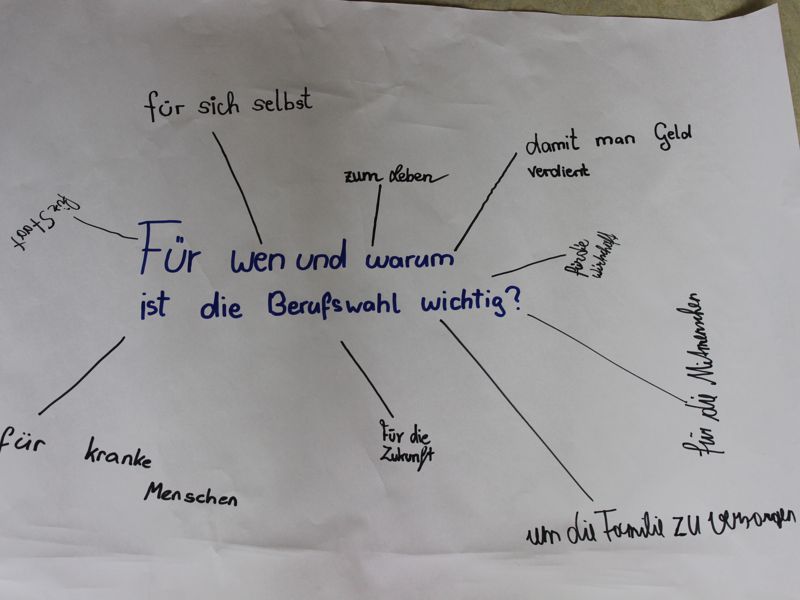 für sich selbst
zum Leben
damit man Geld
verdient
für Staat
Für wen und warum
ist die Berufswahl wichtig?
für die
wirtschaft
für die Mitmenschen
für kranke
Menschen
Für die
Zukunft
um die Familie zu versorgen